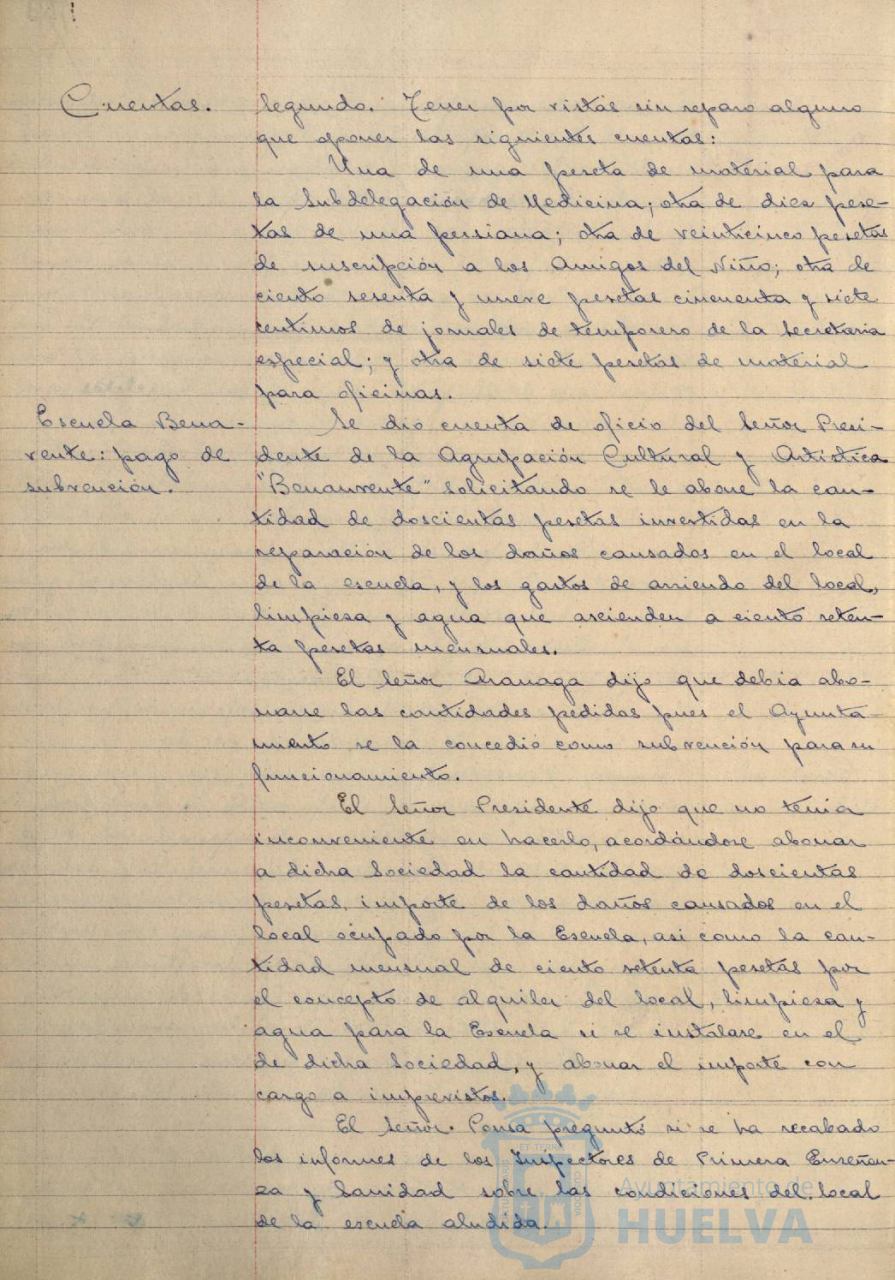 Cuentas.
Segundo. Tener por vistas sin reparo alguno
que oponer las siguientes cuentas:
Una de una peseta de material para
la Subdelegación de Medicina; otra de diez pese-
tas de una persiana; otra de veinticinco pesetas
de suscripción a los Amigos del Niño; otra de
ciento sesenta y nueve pesetas cincuenta y siete
centimos de jornales de temporero de la secretaria
especial; y otra de siete pesetas de material
para oficinas.
Escuela Bena-
vente: pago de
subvención.
Se dió cuenta de oficio del Señor Presi-
dente de la Agrupación Cultural y Artistica
"Benavente" solicitando se le abone la can-
tidad de doscientas pesetas invertidas en la
reparación de los daños causados en el local
de la escuela, y los gastos de arriendo del local,
limpiesa y agua que ascienden a ciento seten-
ta pesetas mensuales.
El Señor Aranaga dijo que debia abo-
narse las cantidades pedidas pues el Ayunta-
miento se la concedió como subvención para su
funcionamiento.
El Señor Presidente dijo que no tenia
inconveniente en hacerlo, acordándose abonar
a dicha Sociedad la cantidad de doscientas
pesetas, importe de los daños causados en el
local ocupado por la Escuela, asi como la can-
tidad mensual de ciento setenta pesetas por
el concepto de alquiler del local, limpiesa y
agua para la Escuela si se instalare en el
de dicha Sociedad, y abonar el importe con
cargo a imprevistos.
El Señor Ponsa preguntó si se ha recabado
los informes de los Inspectores de Primera Enseñan-
za y Sanidad sobre las condiciones del local
de la escuela aludida.
Ayuntamiento de
HUELVA